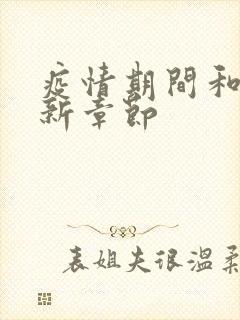 疫情期間和
新章節
表姐夫很溫柔